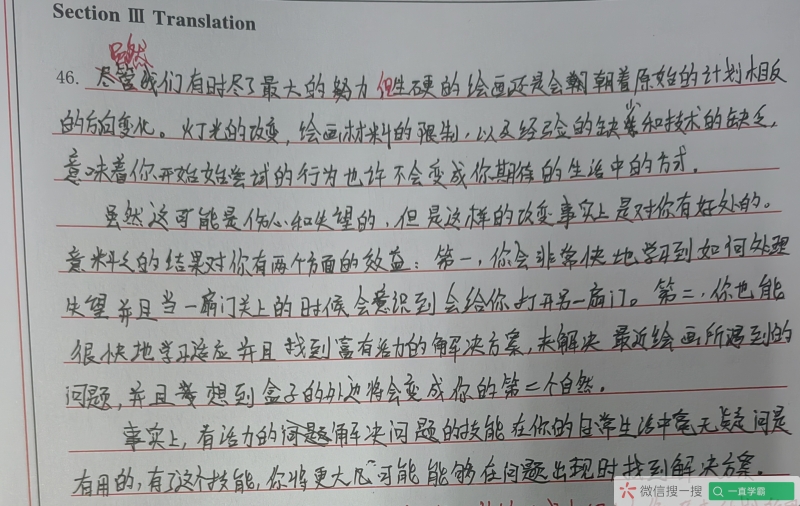 Section III Translation
虽然
46. 尽管我们有时尽了最大的努力 但生硬的绘画还是会朝朝着原始的计划相反
的方向变化。灯光的改变，绘画材料的限制，以及经验的缺少和技术的缺乏，
意味着你开始始尝试的行为也许不会变成你期待的生活中的方式。
虽然这可能是伤心和失望的，但是这样的改变事实上是对你有好处的。
意料之的结果对你有两个方面的效益：第一，你会非常快地学习到如何处理
失望并且当一扇门关上的时候会意识到会给你打开另一扇门。第二，你也能
很快地学习适应并且找到富有活力的解决方案，来解决最近绘画所遇到的
问题，并且 想到盒子的外边将会变成你的第二个自然。
事实上，有活力的问题解决问题的技能在你的日常生活中毫无疑问是
有用的，有了这个技能，你将更大 可能能够在问题出现时找到解决方案。
微信搜一搜 一直学霸